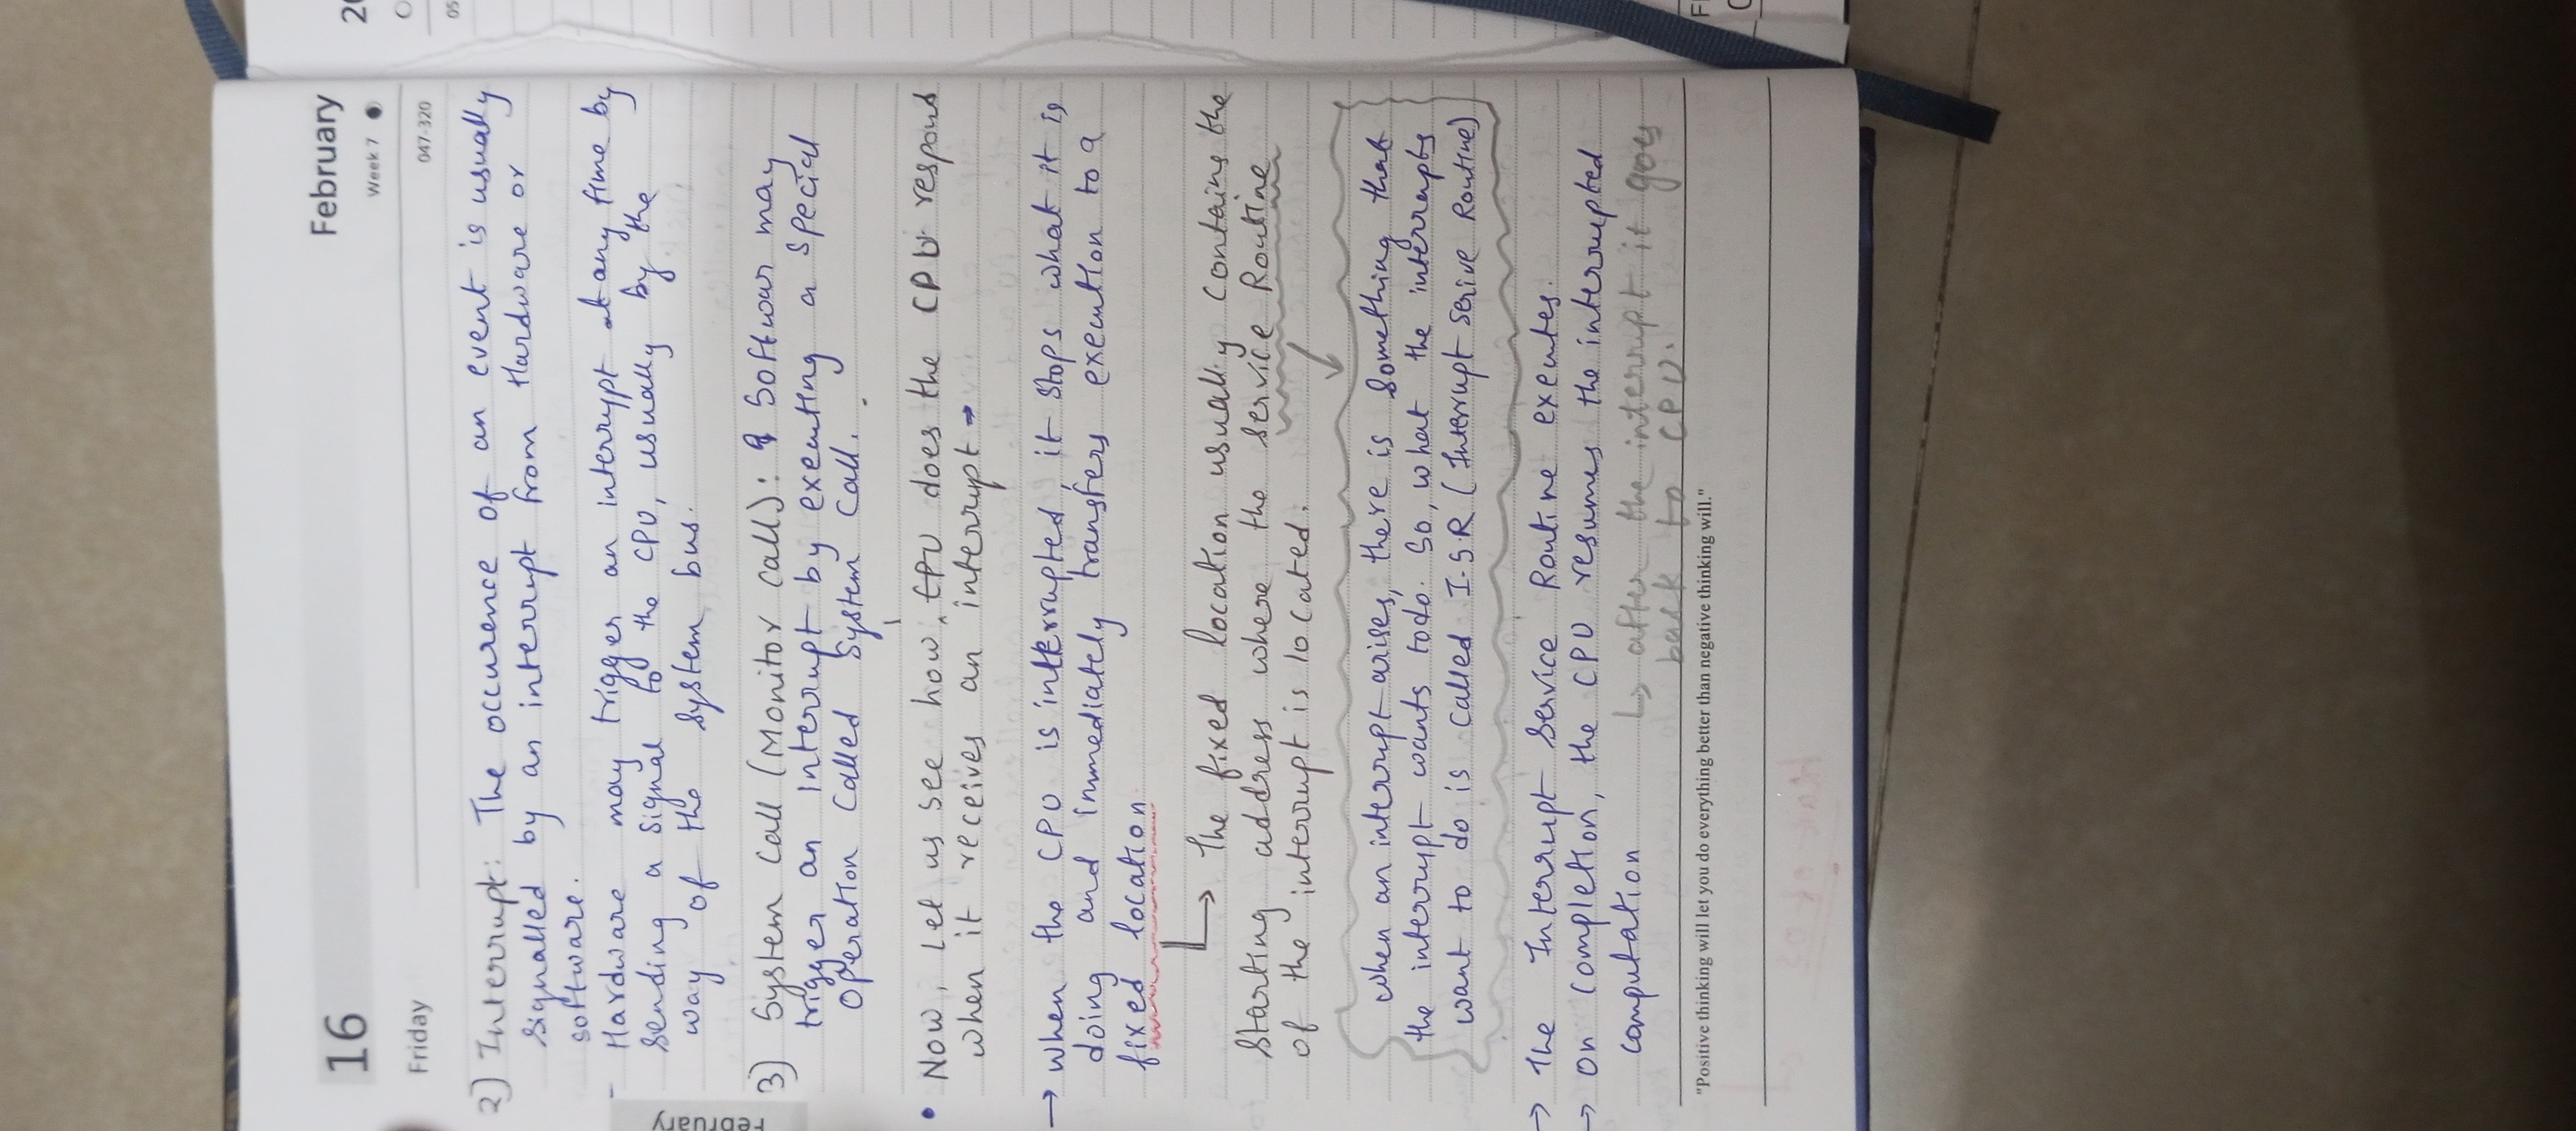 16
February
Week 7
Friday
047-320
2) Interrupt: The occurence of an event is usually
signalled by an interrupt from Hardware or
software.
- Hardware may trigger an interrypt at any time by
sending a signal to the CPU, usually by the
way of the system bus.
3) System Call (Monitor call): Softwar may
trigger an interrupt by executing a special
operation called system call.
• Now, let us see how CPU does the CPU respond
when it receives an interrupt
→ When the CPU is interrupted, it stops what it is
doing and immediately transfers execution to a
fixed location
↳ The fixed location usually contains the
starting address where the service Routine
of the interrupt is located.
When an interrupt arises, there is something that
the interrupt wants todo. So, what the interrupts
want to do is called I.S.R (Interrupt Serive Routine)
→ The Interrupt Service Routine executes.
→ On Completion, the CPU resumes the interrupted
computation
↳ after the interrupt it goes
back to CPU.
"Positive thinking will let you do everything better than negative thinking will."
February
2
05